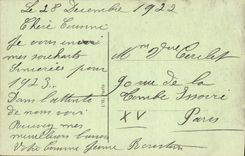 Le 28 Decembre 1922
Chère Cousine
Je vous envoi
mes souhaits
sincères pour
1923.
Dans l'attente
de nous voir
Recevez mes
meilleurs baisers
Votre Cousine Jeanne
Mme Vve Cerclet
90 rue de la
Tombe Issoire
XV Paris